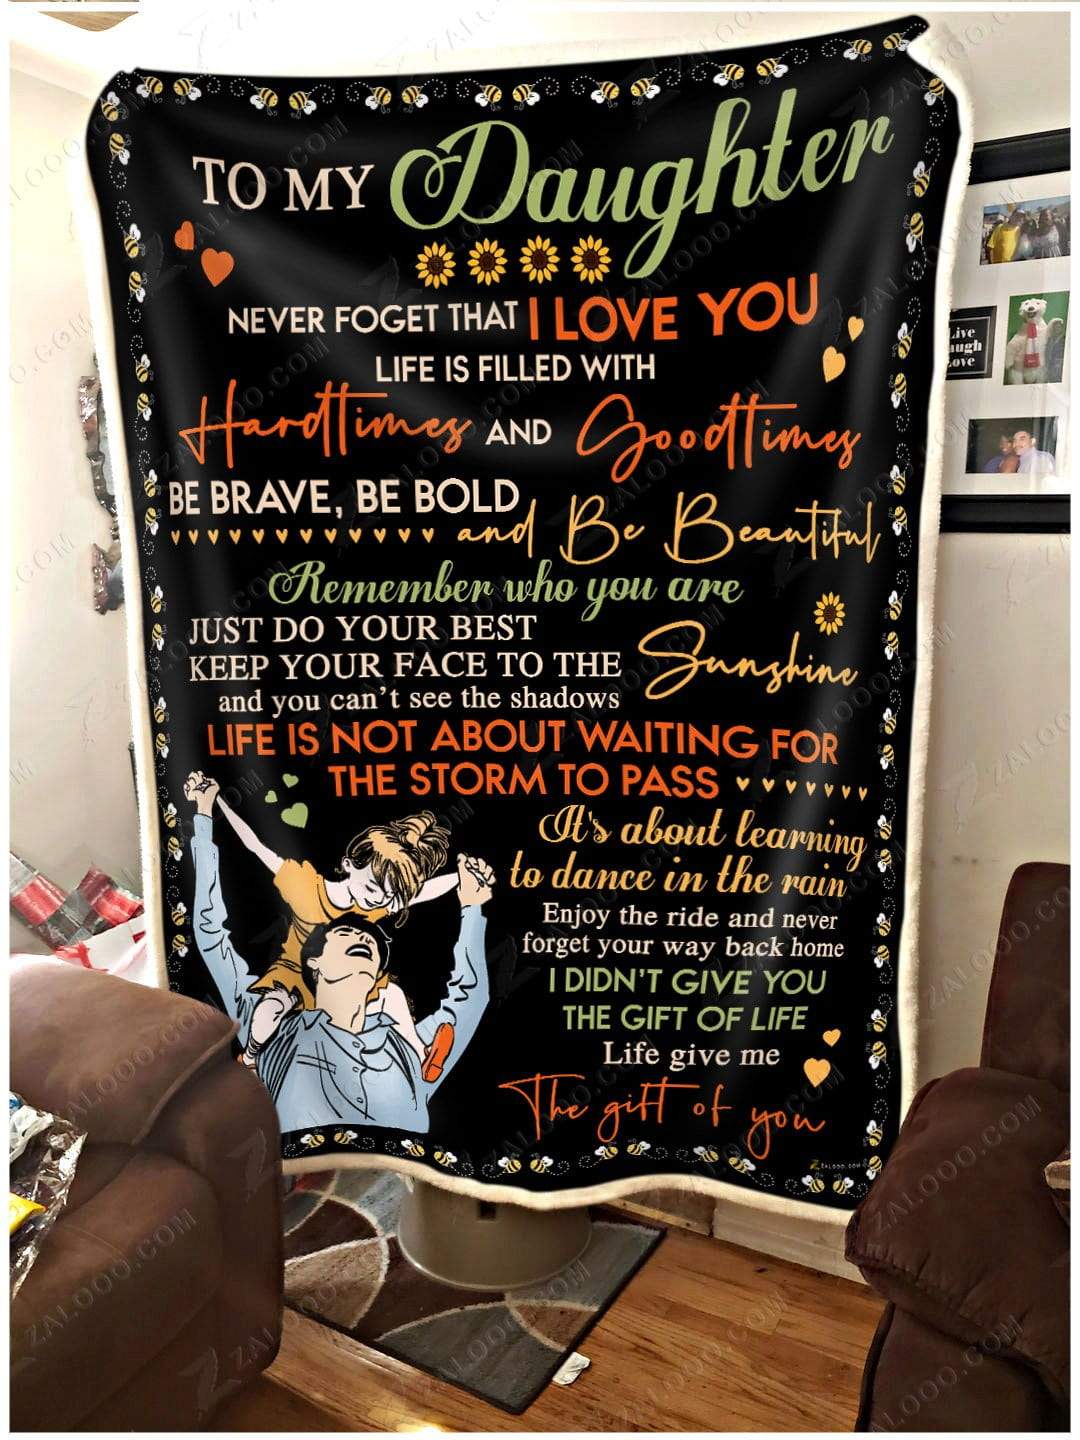 TO MY Daughter
NEVER FOGET THAT I LOVE YOU
LIFE IS FILLED WITH
Hardtimes AND Goodtimes
BE BRAVE, BE BOLD
and Be Beautiful
Remember who you are
JUST DO YOUR BEST
KEEP YOUR FACE TO THE Sunshine
and you can't see the shadows
LIFE IS NOT ABOUT WAITING FOR
THE STORM TO PASS
It's about learning
to dance in the rain
Enjoy the ride and never
forget your way back home
I DIDN'T GIVE YOU
THE GIFT OF LIFE
Life give me
The gift of you
ZALOOO.COM
Live
Laugh
Love
ZALOOO.COM